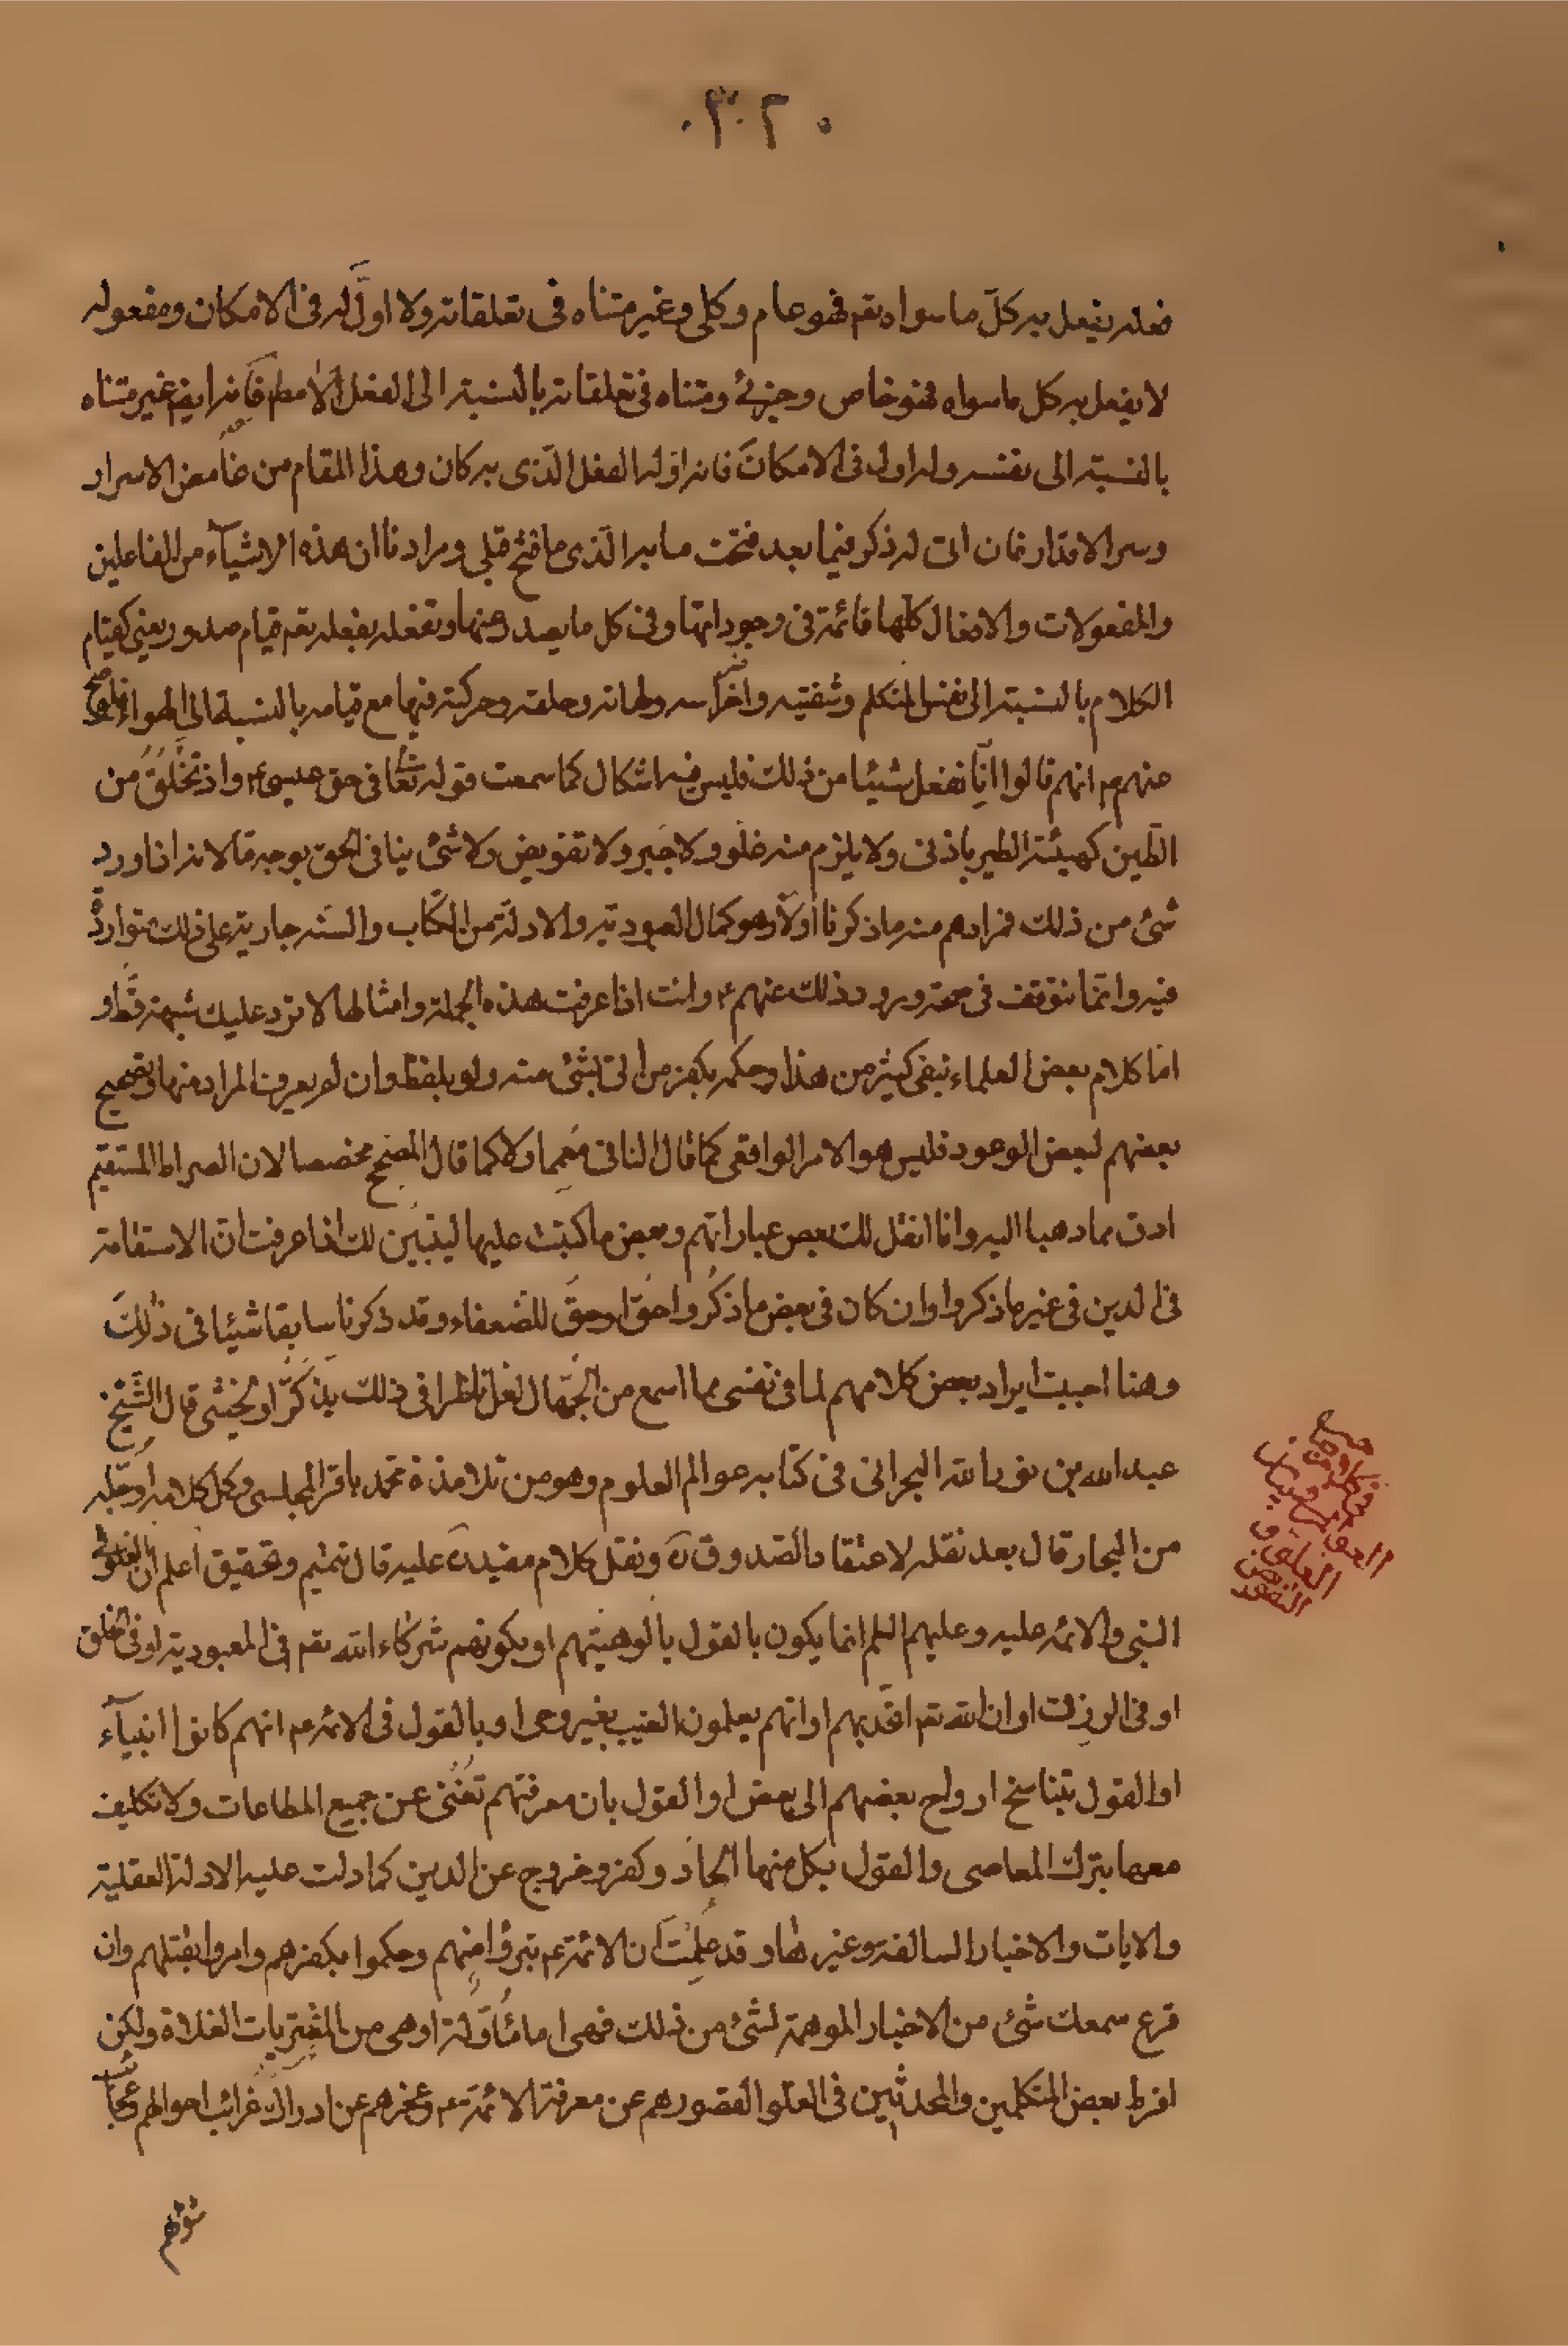 ٣٠٢
فعله يفعل به كلّ ما سواه تعم فهو عام وكلي وغير متناه فى تعلقاته ولا اوّل له فى الامكان ومفعوله
لا يفعل به كل ما سواه فهو خاص وجزئى ومتناه فى تعلقاته بالنسبة الى الفعل الا مطلقا فانه ايضم غير متناه
بالنسبة الى نفسه وله اول فى الامكان فانه اوله الفعل الّذى به كان وهذا المقام من غامض الاسرار
وسر الاقدار فان اتى له ذكر فيما بعد فتحت بابه الّذى ما فتح قبلى ومرادنا ان هذه الاشيآء من الفاعلين
والمفعولات والافعال كلّها قائمة فى وجوداتها وفى كل ما يصدر عنها وتفعله بفعله تعم قيام صدور يعنى كقيام
الكلام بالنسبة الى نفس المتكلم وشفتيه واضراسه ولهاته وحلقه وحركته فيها مع قيامه بالنسبة الى الهواء فلو صح
عنهم م انهم قالوا انّا نفعل شيئا من ذلك فليس فيه اشكال كما سمعت قوله تعا فى حق عيسى ع واذ تَخْلُقُ من
الطّين كهيئة الطير باذنى ولا يلزم منه غلوّ ولا جَبر ولا تفويض ولا شئ ينافى الحق بوجه ما لانه اذا ورد
شئ من ذلك فمرادهم منه ما ذكرنا اولّا وهو كمال العبودية والادلة من الكتاب والسنه جارية على ذلك متواردة
فيه وانما نتوقف فى صحة ورود ذلك عنهم ع وانت اذا عرفت هذه الجملة وامثالها لا ترد عليك شبهة قطّ و
امّا كلام بعض العلماء بنفى كثير من هذا وحكمه بكفر من اتى بشئ منه ولو بلفظ وان لم يعرف المراد منها وتصحيح
بعضهم لبعض الوجوه فليس هو الامر الواقعى كما قال النافى معمما ولا كما قال المصحح مخصصا لان الصراط المستقيم
ادق مما ذهبا اليه وانا انقل لك بعض عباراتهم وبعض ما كتبت عليها ليتبيّن لك اذا عرفت انّ الاستقامة
فى الدين فى غير ما ذكروا وان كان فى بعض ما ذكروا حقّا وحقّ للضعفاء وقد ذكرنا سابقا شيئا فى ذلك
وهنا احببت ايراد بعض كلامهم لما فى نفسى مما اسمع من الجُهّال لعلّ ناظرا فى ذلك يذكّر او يخشى قال الشّيخ
عبد الله بن نور الله البحرانى فى كتابه عوالم العلوم وهو من تلامذة محمد باقر المجلسى وكل كلامه او جلّه
من البحار قال بعد نقله لاعتقاد الصدوق ره ونقل كلام مفيد ره عليه قال تتميم وتحقيق اعلم ان الغلو فى
النبى والائمه عليه وعليهم السلم انما يكون بالقول بالوهيتهم او بكونهم شركاء الله تعم فى المعبودية او فى الخلق
او فى الرزق او ان الله تعم اتّحد بهم او انهم يعلمون الغيب بغير وحى او بالقول فى الائمه م انهم كانوا انبيآء
او القول بتناسخ ارواح بعضهم الى بعض او القول بان معرفتهم تُغنى عن جميع الطاعات ولا تكليف
معها بترك المعاصى والقول بكل منها الحاد وكفر وخروج عن الدين كما دلت عليه الادلة العقلية
والايات والاخبار السالفة وغيرها وقد علمتَ ان الائمة م تبرؤا منهم وحكموا بكفرهم وامروا بقتلهم وان
قرع سمعك شئ من الاخبار الموهمة لشئ من ذلك فهى اما مأوّلة او هى من المفتريات الغلاة ولكن
افرط بعض المتكلمين والمحدثين فى الغلو لقصورهم عن معرفة الائمة م وعجزهم عن ادراك غرائب احوالهم وعجائب
شؤنهم